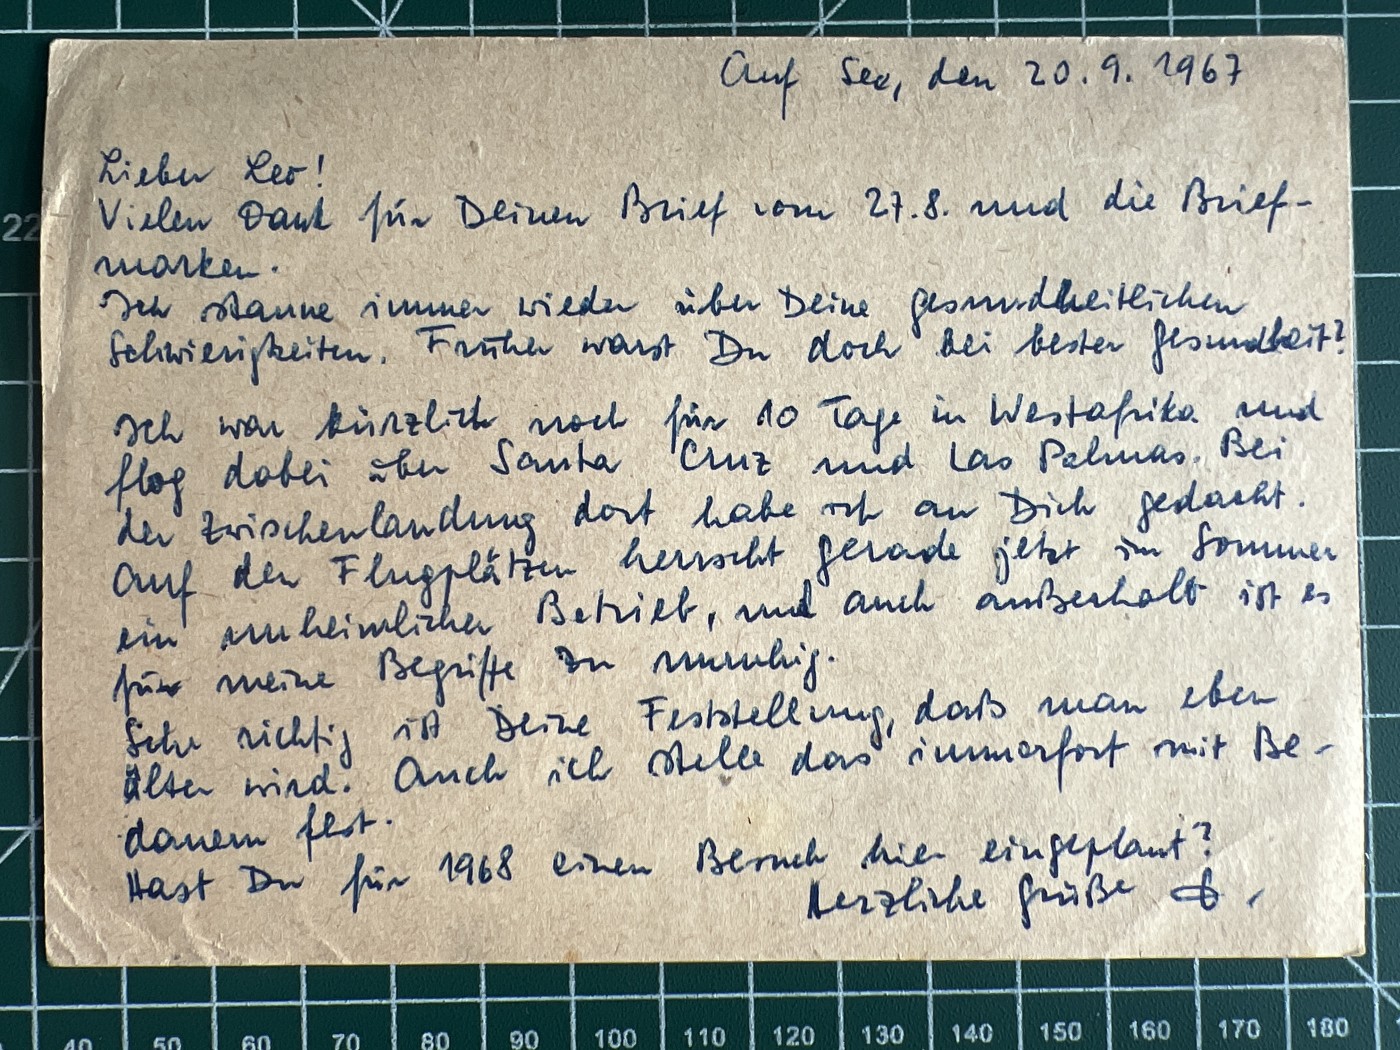 Auf See, den 20.9.1967
Lieber Leo!
Vielen Dank für Deinen Brief vom 27.8. und die Brief-
marken.
Ich staune immer wieder über Deine gesundheitlichen
Schwierigkeiten. Früher warst Du doch bei bester Gesundheit?
Ich war kürzlich noch für 10 Tage in Westafrika und
flog dabei über Santa Cruz und Las Palmas. Bei
der Zwischenlandung dort habe ich an Dich gedacht.
Auf den Flugplätzen herrscht gerade jetzt im Sommer
ein unheimlicher Betrieb, und auch außerhalb ist es
für meine Begriffe zu unruhig.
Sehr richtig ist Deine Feststellung, daß man eben
älter wird. Auch ich stelle das immerfort mit Be-
dauern fest.
Hast Du für 1968 einen Besuch hier eingeplant?
Herzliche Grüße
22
40 50 60 70 80 90 100 110 120 130 140 150 160 170 180